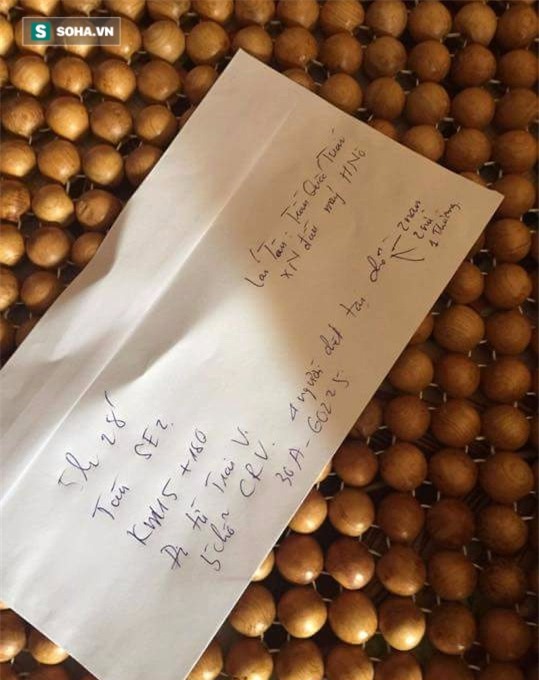 SOHA.VN
5h 28'
Tàu SE2.
Km15 + 180
Đi từ Trái V.
5 chỗ CRV.
30A-60225
4 người chết tại chỗ
2 nam
2 nữ
1 Thương.
Lái Tàu: Trần Quốc Tuấn
XN đầu máy HNô